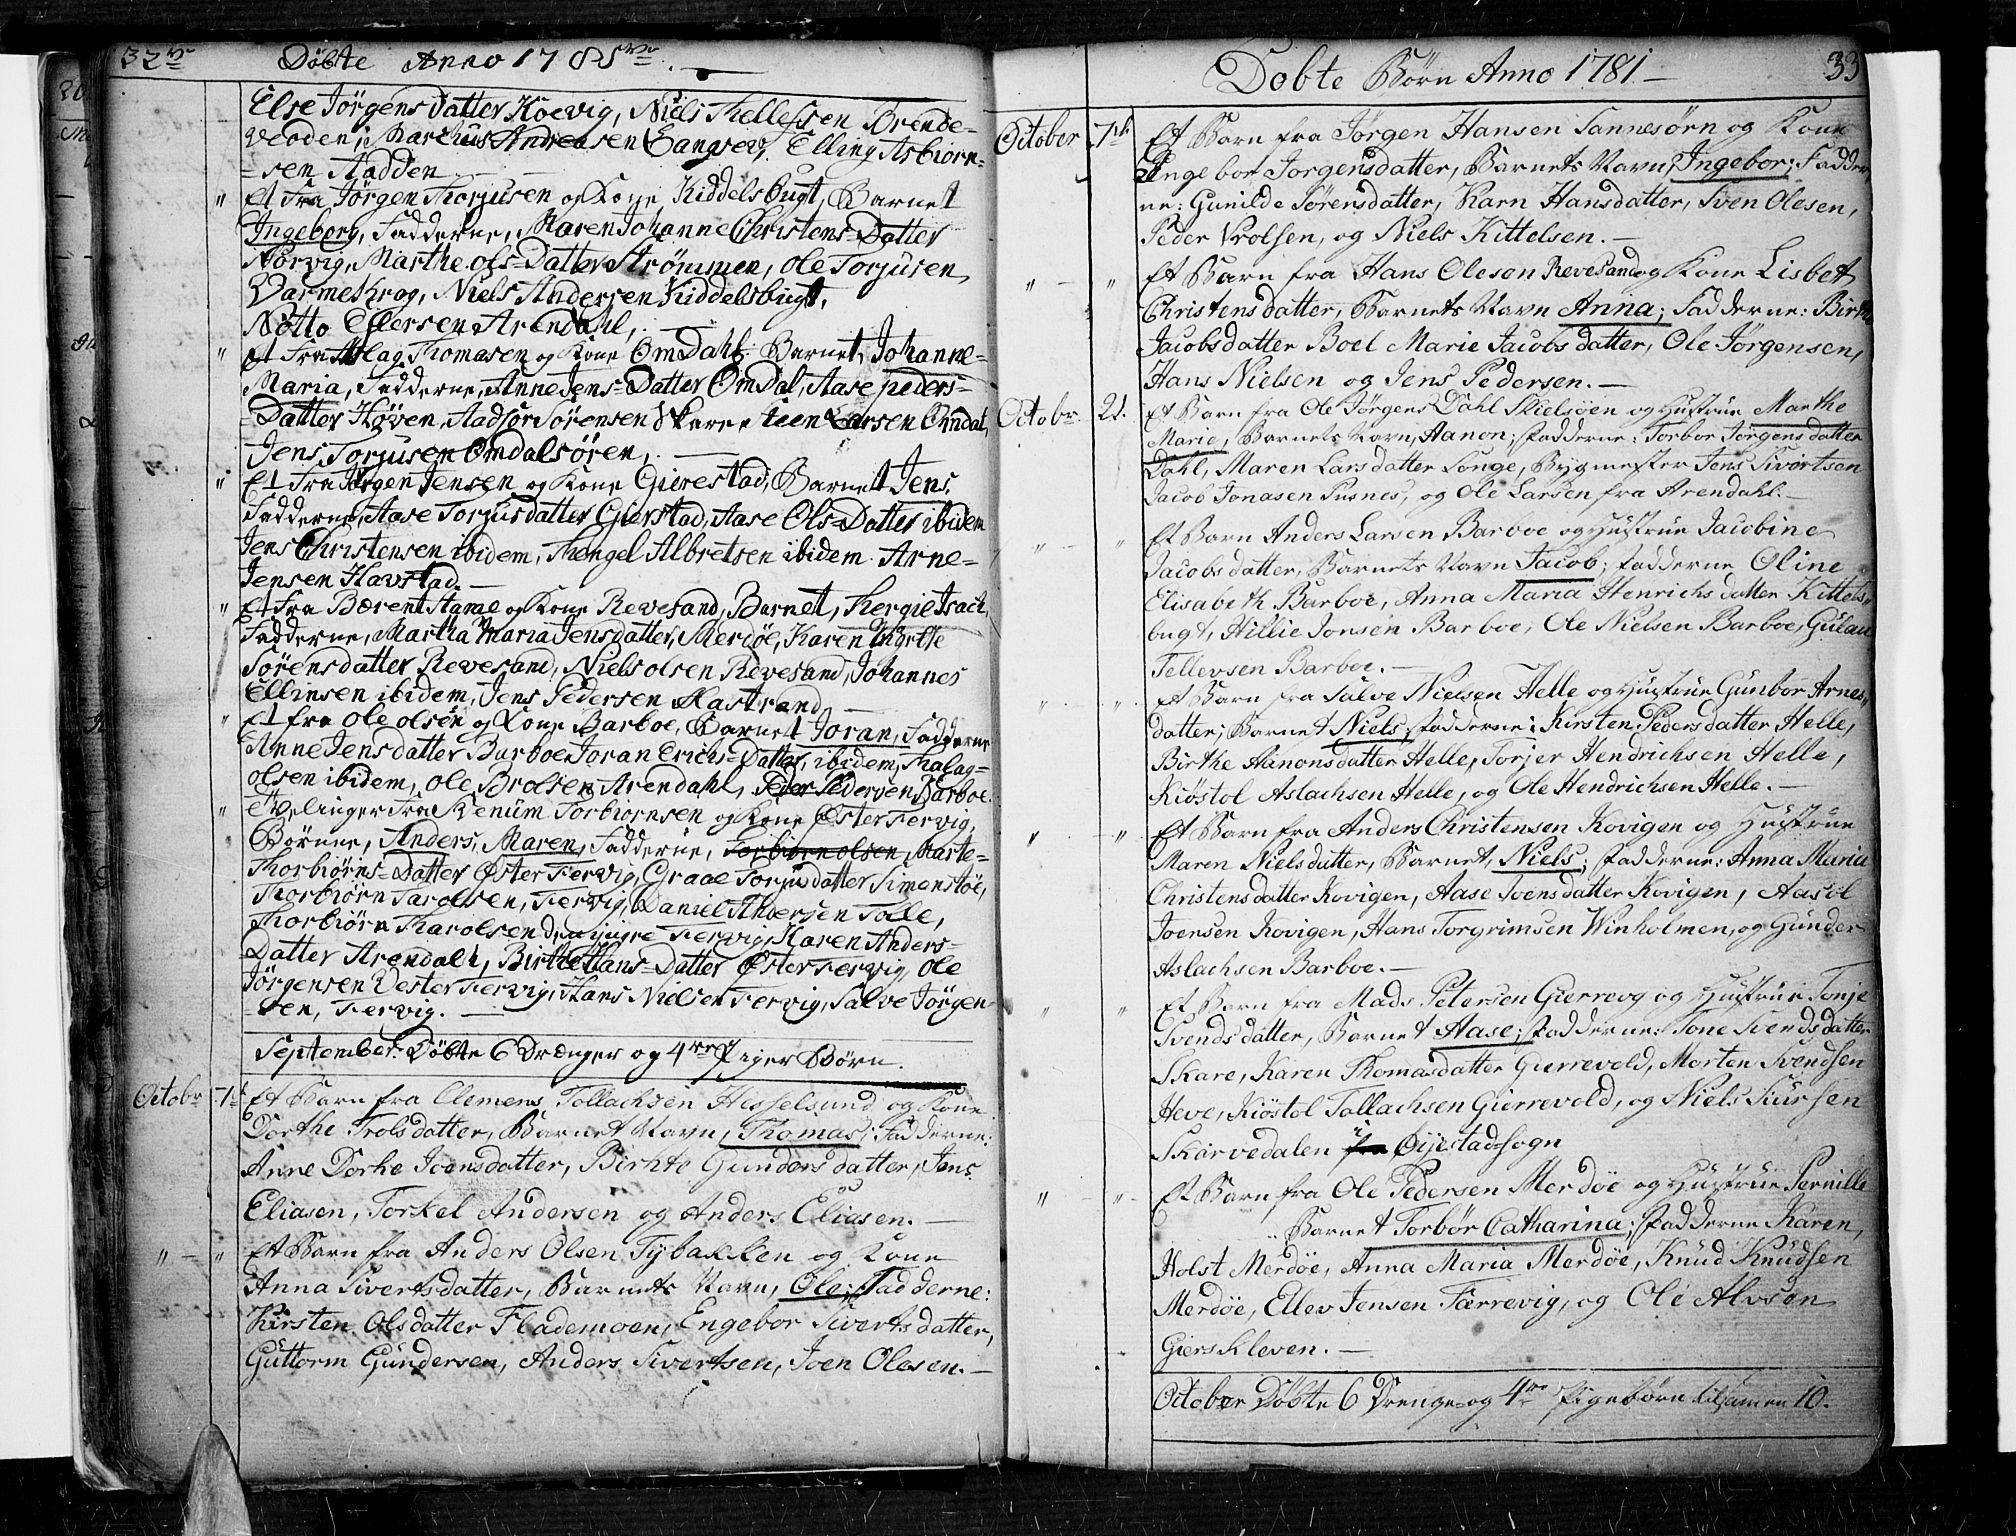 32
Döbte Anno 1781
Else Jörgens Datter Koevig, Niels Thellefsen Brende-
veoden, Marchus Andreasen Langsev, Elling Asbiorn-
=sen Aadden
" Et Fra Jörgen Thorjusen og Kone Kiddelsbugt, Barnet
Ingeborg, Fadderne, Maren Johanne Christens=Datter
Norvig, Marthe ols=Datter Strömmen, Ole Torjusen
Varmekrog, Niels Andersen Kiddelsbugt,
Notto Ellersen Arendahl,
" Et Fra Aslag Thomasen og Kone Omdahl. Barnet, Johanne-
Maria, Fadderne, Anne Jens=Datter Omdal, Aase peders=
=Datter Höven, Aadsör Sörensen Skare Iven Larsen Omdal,
Jens Torjusen Omdalsören,
" Et Fra Jörgen Jensen og Kone Gierestad, Barnet Jens,
Fadderne, Aase Torjusdatter Gierstad, Aase Ols=Datter ibidem
Jens Christensen ibidem, Thengel Albretsen ibidem. Arne=
Jensen Havstad. —
" Et Fra Bærent Aanae og Kone Revesand, Barnet, Thergie Isach,
Fadderne, Martha Maria Jensdatter, Merdöe, Karen Myrthe
Sörensdatter Revesand, Niels olsen Revesand, Johannes
Ellinsen ibidem, Jens Pedersen Hastrand —
" Et fra Ole olsen og Kone Barboe, Barnet Joran, Fadderne
Anne Jensdatter Barboe Joran Erichs=Datter, ibidem, Thalag-
olsen ibidem, Ole Brolsen Arendahl, Peder Pedersen Barboe.
" Tvelinger Fra Venüm Torbiornsen og Kone Öster Fervig,
Börnene, Anders, Maren, Fadderne, Torbiörn olsen, Marte=
Thorbiörns=Datter Öster Fervig, Graae Torjusdatter Simenstöe,
Thorbiörn Tarolsen, Fervig, Daniel Andersen Tolle,
Thorbiörn Tharolsen den yngre Fervig, Karen Anders=
Datter Arendahl, Birthe Hans=Datter Öster Fervig, Ole
Jörgensen Vester Fervig, Hans Nielsen Fervig, Salve Jörgen
=sen, Fervig. —
September: Döbte 6 Drænger og 4re Piger Börn.
Octobr 7de Et Barn fra Clemens Tollachsen Hesselsund og Kone
Dorthe Trolsdatter, Barnet Navn, Thomas; Fadderne:
Anne Dorke Ivensdatter, Birhte Gundersdatter, Jens
Eliasen, Torkel Andersen og Anders Eliasen. —
" — " Et Barn fra Anders Olsen Tybakken og Kone
Anna Sivertsdatter, Barnets Navn, Ole; Fadderne:
Kirsten Olsdatter Flademoen, Engebor Sivertsdatter,
Guttorm Gundersen, Anders Sivertsen, Joen Olesen. —
Döbte Börn Anno 1781 —
33
October 7de Et Barn fra Jörgen Hansen Sannesörn og Kone
Ingebor Jorgensdatter, Barnets Navn, Ingebor; Fadder
ne: Gunilde Sörensdatter, Karn Hansdatter, Sven Olesen,
Peder Vrolsen, og Niels Kittelsen. —
" — " Et Barn fra Hans Olesen Revesand og Kone Lisbet
Christensdatter, Barnets Navn Anna; Fadderne: Birthe
Jacobsdatter Boel Marie Jacobsdatter, Ole Jörgensen,
Hans Nielsen og Jens Pedersen. —
Octobr 21. Et Barn fra Ole Jörgens Dahl Skielsöen og Hustrue Marthe
Marie, Barnets Navn, Aanon; Fadderne: Torbor Jörgensdatter
Dahl, Maren Larsdatter Songe, Bygmester Jens Sivortsen
Jacob Jonasen Pusnes, og Ole Larsen fra Arendahl. —
" — " Et Barn Anders Larsen Barboe og Hustrue Jacobine
Jacobsdatter, Barnets Navn Jacob; Fadderne Oline
Elisabeth Barboe, Anna Maria Henrichsdatter Kittels-
bugt, Hillie Jonsen Barboe, Ole Nielsen Barboe, Gulau
Tellevsen Barboe. —
" " Et Barn fra Salve Nielsen Helle og Hustrue Gunbor Arnes-
datter; Barnet Niels; Fadderne: Kirsten Pedersdatter Helle,
Birthe Aanonsdatter Helle, Torjer Hendrichsen Helle,
Kiöstol Aslachsen Helle, og Ole Hendrichsen Helle. —
" — " Et Barn fra Anders Christensen Kovigen og Hustrue
Maren Nielsdatter, Barnet, Niels; Fadderne: Anna Maria
Christensdatter Kovigen, Aase Svensdatter Kovigen, Aasol
Joensen Kovigen, Hans Torgrimsen Winholmen, og Gunder
Aslachsen Barboe. —
" " Et Barn fra Mads Petersen Gierrevog og Hustrue Tonje
Svendsdatter, Barnet Aase; Fadderne: Tone Svendsdatter
Skare, Karen Thomasdatter Gierrevold, Morten Svendsen
Heve, Kiöstol Tollachsen Gierrevold, og Niels Siursen
Skarvedalen i Öyestad sogn
" — " Et Barn fra Ole Pedersen Merdöe og Hustrue Pernille
.. Barnet Torbör Catharina; Fadderne Karen,
Holst Merdöe, Anna Maria Merdöe, Knud Knudsen
Merdöe, Ellev Jensen Færrevig, og Ole Alvsen
Gierskleven. —
October Döbte 6 Drenge og 4re Pigebörn tilsamen 10.